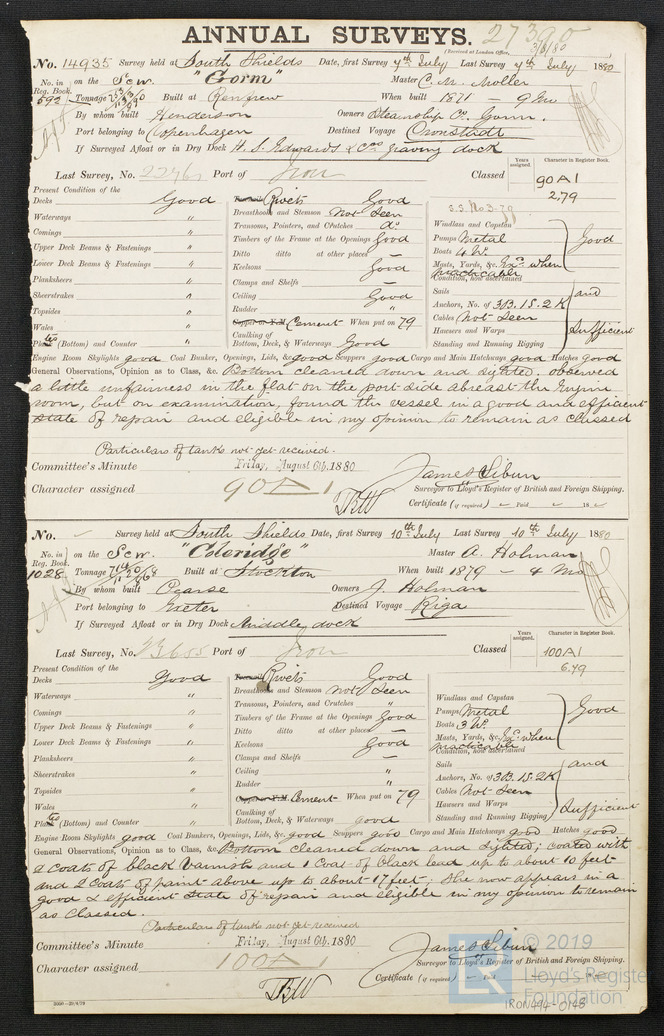 ANNUAL SURVEYS. 27390
(Received at London Office, 3/8/80
No. 14935 Survey held at South Shields Date, first Survey 7th July Last Survey 7th July 1880
No. in Reg. Book. 592 on the Scw. "Gorm" Master C. M. Moller
Tonnage Built at Renfrew When built 1871 - 9 Mo
By whom built Henderson Owners Steamship Co. Gorm.
Port belonging to Copenhagen Destined Voyage Cronstadt
If Surveyed Afloat or in Dry Dock H. S. Edwards & Cos graving dock
Last Survey, No. Port of Iron Classed Years assigned. Character in Register Book. 90 A 1
2,79
Present Condition of the
Decks Good Rivets Good
Waterways " Breasthooks and Stemson Not Seen
Comings " Transoms, Pointers, and Crutches do
Upper Deck Beams & Fastenings " Timbers of the Frame at the Openings Good
Lower Deck Beams & Fastenings " Ditto ditto at other places —
Planksheers " Keelsons Good
Sheerstrakes " Clamps and Shelfs —
Topsides " Ceiling Good
Wales " Rudder "
Plates (Bottom) and Counter " Copper or Y.M. Cement When put on 79
Caulking of Bottom, Deck, & Waterways Good
S.S. No. 3-79
Windlass and Capstan
Pumps Metal Good
Boats 4 W.
Masts, Yards, &c. Exd when practicable
Condition, how ascertained
Sails and
Anchors, No. of 3B. 1S. 2K
Cables Not Seen
Hawsers and Warps Sufficient
Standing and Running Rigging
Engine Room Skylights good Coal Bunker, Openings, Lids, &c. good Scuppers good Cargo and Main Hatchways good Hatches good
General Observations, Opinion as to Class, &c. Bottom cleaned down and sighted. observed
a little unfairness in the flat on the port side abreast the Engine
room, but on examination, found the vessel in a good and efficient
state of repair and eligible in my opinion to remain as classed
Particulars of tanks not yet received.
Committee's Minute Friday, August 6th, 1880
Character assigned 90 A 1
James Sibun
Surveyor to Lloyd's Register of British and Foreign Shipping.
TBW Certificate (if required) Paid 18
No. Survey held at South Shields Date, first Survey 10th July Last Survey 10th July 1880
No. in Reg. Book. 1028 on the Scw. "Coleridge" Master A. Holman
Tonnage Built at Stockton When built 1879 - 4 Mo
By whom built Pearse Owners J. Holman
Port belonging to Exeter Destined Voyage Riga
If Surveyed Afloat or in Dry Dock Middle dock
Last Survey, No. Port of Iron Classed Years assigned. Character in Register Book. 100 A 1
6.79
Present Condition of the
Decks Good Rivets Good
Waterways " Breasthooks and Stemson Not Seen
Comings " Transoms, Pointers, and Crutches "
Upper Deck Beams & Fastenings " Timbers of the Frame at the Openings Good
Lower Deck Beams & Fastenings " Ditto ditto at other places —
Planksheers " Keelsons Good
Sheerstrakes " Clamps and Shelfs —
Topsides " Ceiling "
Wales " Rudder "
Plates (Bottom) and Counter " Copper or Y.M. Cement When put on 79
Caulking of Bottom, Deck, & Waterways good
Windlass and Capstan
Pumps Metal Good
Boats 3 W.
Masts, Yards, &c. Exd when practicable
Condition, how ascertained
Sails and
Anchors, No. of 3B. 1S. 2K
Cables Not Seen
Hawsers and Warps Sufficient
Standing and Running Rigging
Engine Room Skylights good Coal Bunkers, Openings, Lids, &c. good Scuppers good Cargo and Main Hatchways good Hatches good
General Observations, Opinion as to Class, &c. Bottom cleaned down and sighted; coated with
2 coats of black Varnish and 1 Coat of black lead up to about 10 feet
and 2 coats of paint above up to about 17 feet; She now appears in a
good & efficient State of repair and eligible in my opinion to remain
as Classed.
Particulars of tanks not yet received
Committee's Minute Friday, August 6th, 1880
Character assigned 100 A 1
James Sibun
Surveyor to Lloyd's Register of British and Foreign Shipping.
TBW Certificate (if required)
© 2019
Lloyd's Register
Foundation
IRON494-0148